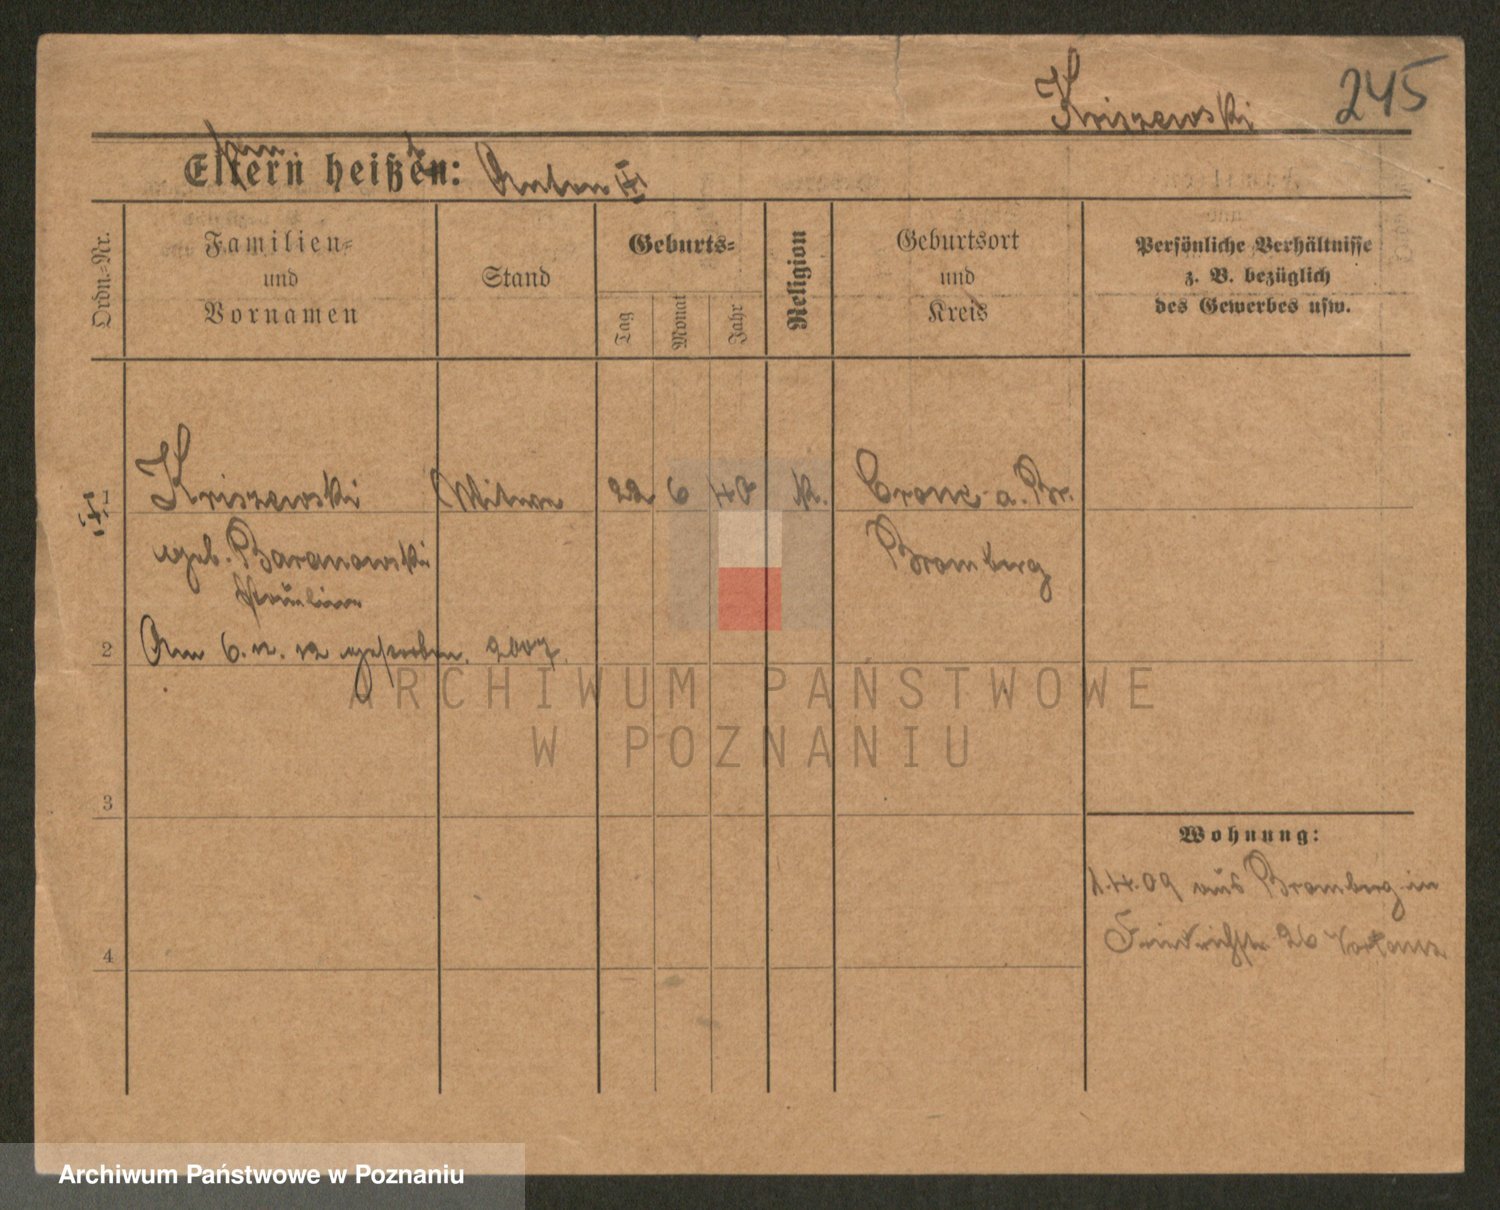 Kriszewski 245
Eltern heißen: Anton
Ordn.=Nr.
Familien=
und
Vornamen
Stand
Geburts=
Tag
Monat
Jahr
Religion
Geburtsort
und
Kreis
Persönliche Verhältnisse
z. B. bezüglich
des Gewerbes usw.
1 Kriszewski Witwe 22 6 40 k. Crone a. Br.
geb. Baranowski Bromberg
Pauline
2 Am 6. 12 gestorben. 2007
3
4
Wohnung:
1.4.09 aus Bromberg in
Friedrichstr. 26
ARCHIWUM PAŃSTWOWE
W POZNANIU
Archiwum Państwowe w Poznaniu